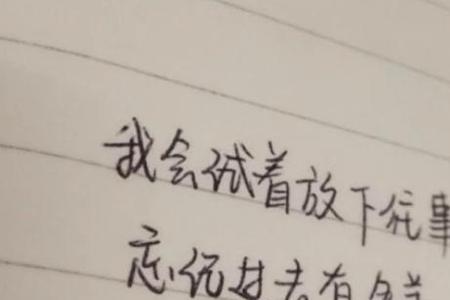 我会试着放下往事
忘记过去有